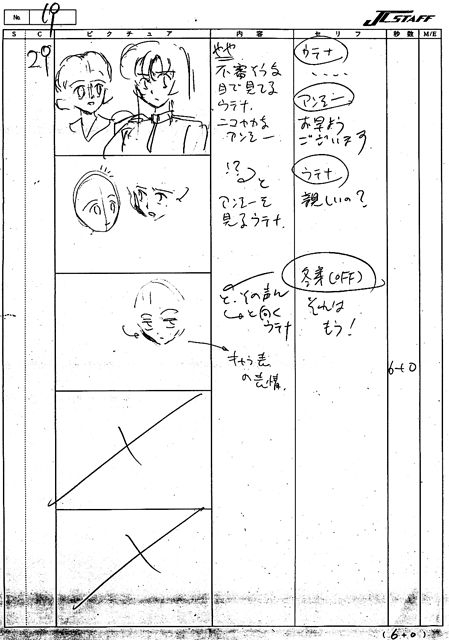 No. 19
J.C.STAFF
S C ピクチュア 内容 セリフ 秒数 M/E
29
やや
不審そうな
目で見てる
ウテナ
ニコヤカな
アンシー
ウテナ
・・・・
アンシー
お早よう
ございます
!?
と
アンシーを
見るウテナ
ウテナ
親しいの?
と、その声に
と向く
ウテナ
冬芽(OFF)
それは
もう!
キャラ表
の表情
6+0
(6+0)